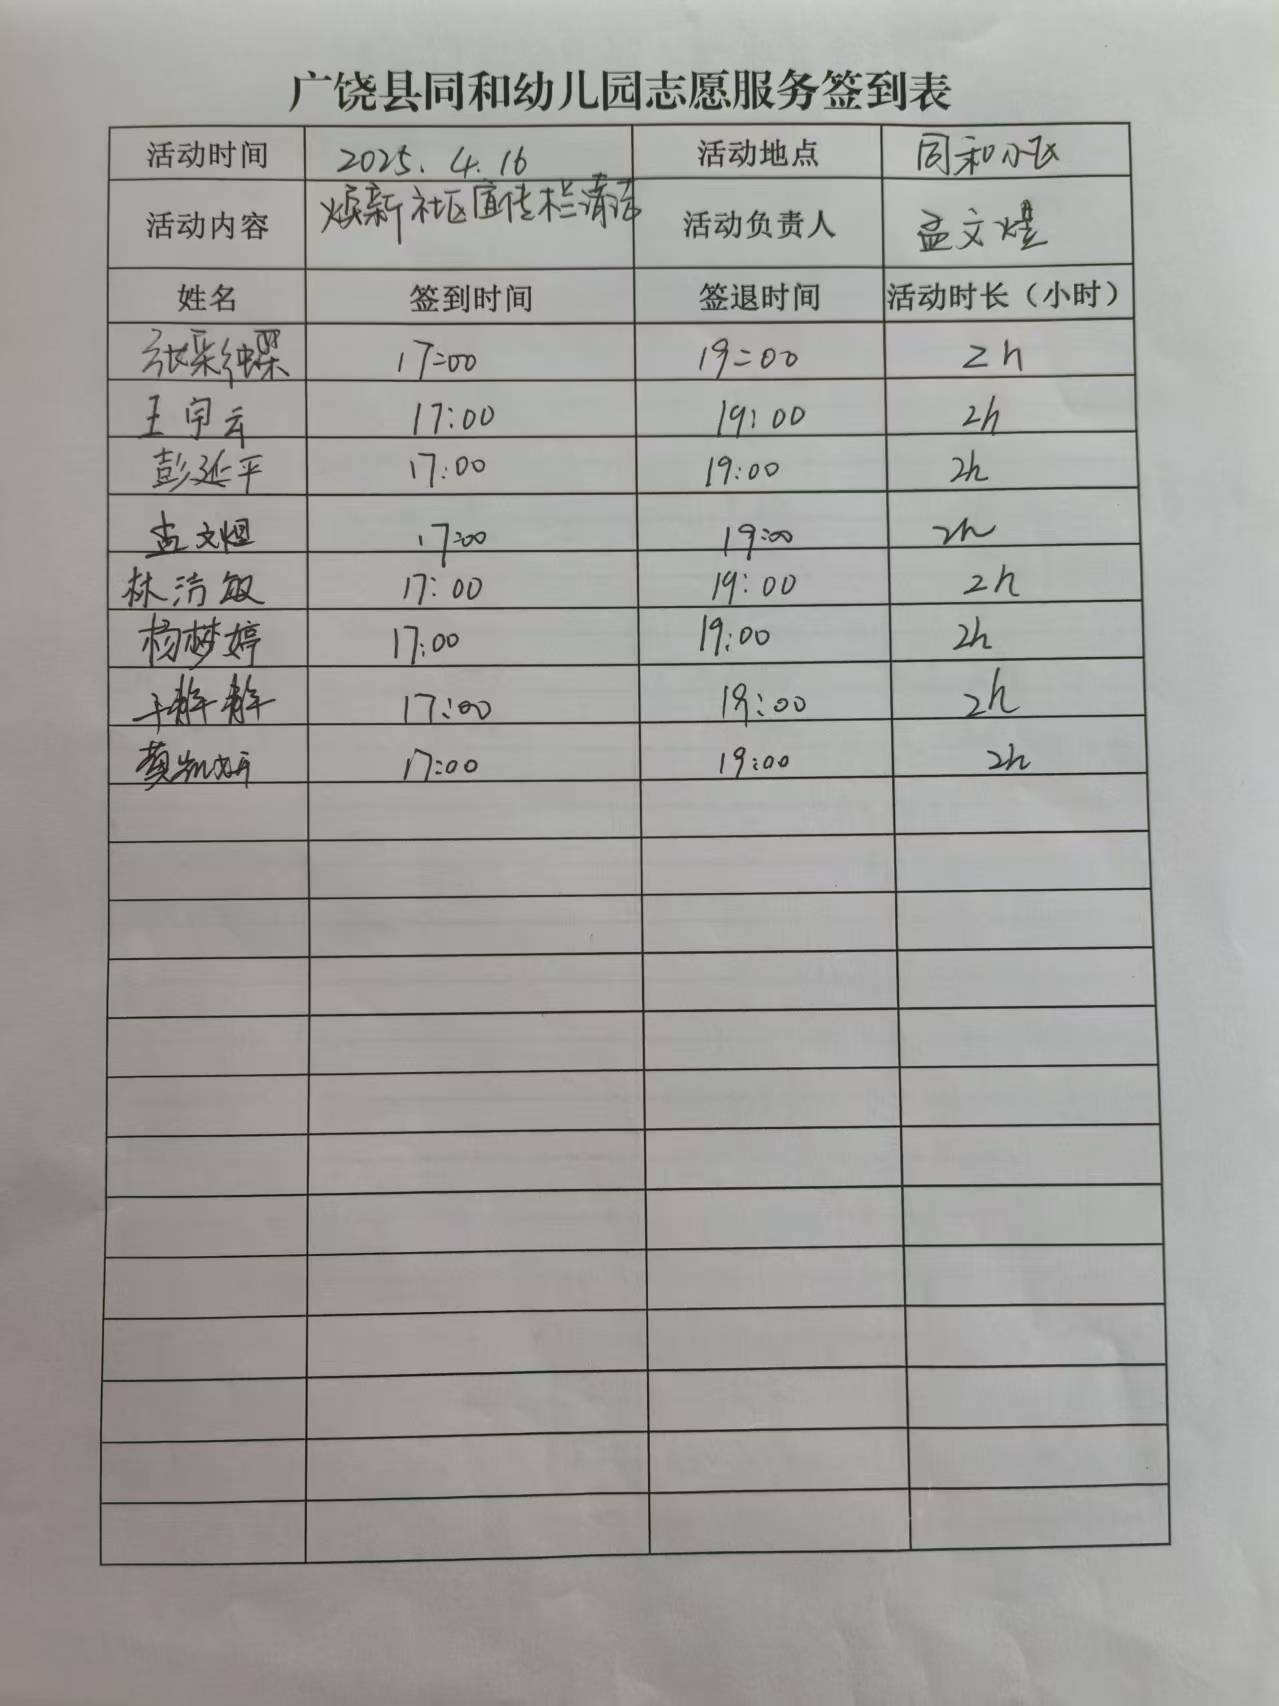 广饶县同和幼儿园志愿服务签到表
活动时间 2025.4.16 活动地点 同和小区
活动内容 焕新社区宣传栏清洁 活动负责人 孟文煜
姓名 签到时间 签退时间 活动时长（小时）
张采 17:00 19:00 2h
王宇云 17:00 19:00 2h
彭延平 17:00 19:00 2h
孟文煜 17:00 19:00 2h
林洁敏 17:00 19:00 2h
杨梦婷 17:00 19:00 2h
于静静 17:00 19:00 2h
17:00 19:00 2h